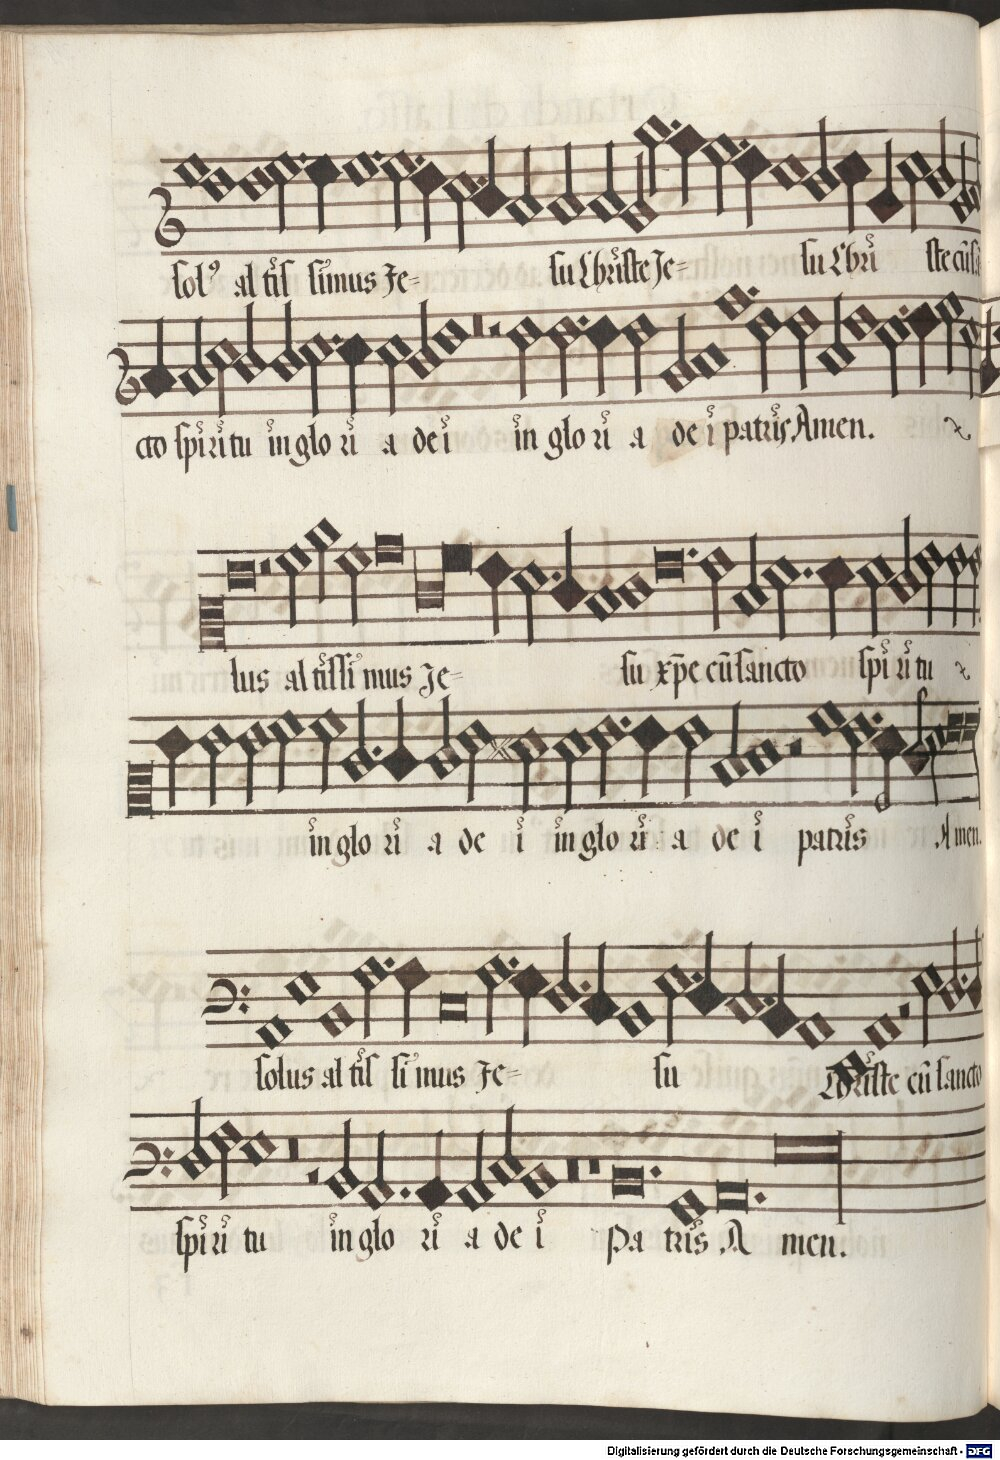 solꝰ al tis simus Je= su Christe Je= su Chri ste cū sā
cto spiritu in glo ri a dei in glo ri a de i patris Amen.
lus altissi mus Je= su xp̄e cū sancto spi ri tu
in glo ri a de i in glo ri a de i patris Amen.
solus al tis si mus Je= su Christe cū sancto
spi ri tu in glo ri a de i Pa tris A men.
Digitalisierung gefördert durch die Deutsche Forschungsgemeinschaft - DFG